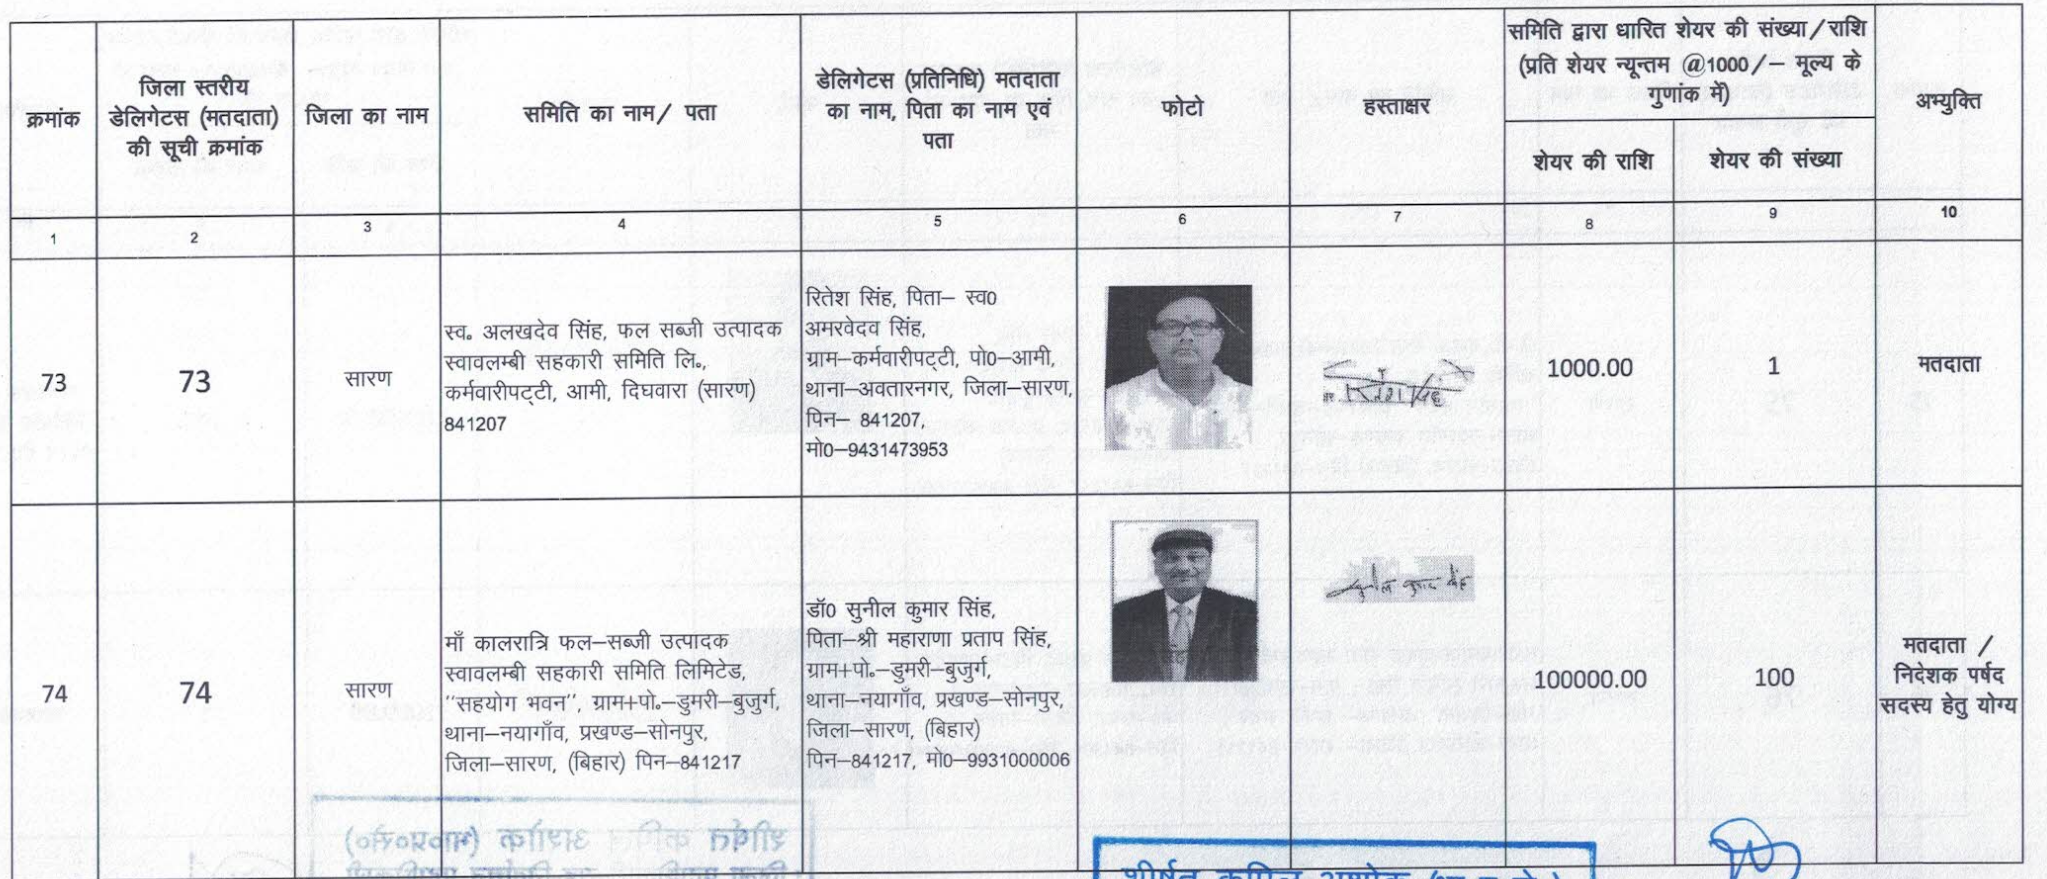 क्रमांक
जिला स्तरीय
डेलिगेटस (मतदाता)
की सूची क्रमांक
जिला का नाम
समिति का नाम/ पता
डेलिगेटस (प्रतिनिधि) मतदाता
का नाम, पिता का नाम एवं
पता
फोटो
हस्ताक्षर
समिति द्वारा धारित शेयर की संख्या/राशि
(प्रति शेयर न्यून्तम @1000/– मूल्य के
गुणांक में)
शेयर की राशि
शेयर की संख्या
अभ्युक्ति
1
2
3
4
5
6
7
8
9
10
73
73
सारण
स्व. अलखदेव सिंह, फल सब्जी उत्पादक
स्वावलम्बी सहकारी समिति लि.,
कर्मवारीपट्टी, आमी, दिघवारा (सारण)
841207
रितेश सिंह, पिता– स्व0
अमरवेदव सिंह,
ग्राम–कर्मवारीपट्टी, पो0–आमी,
थाना–अवतारनगर, जिला–सारण,
पिन– 841207,
मो0–9431473953
1000.00
1
मतदाता
74
74
सारण
माँ कालरात्रि फल–सब्जी उत्पादक
स्वावलम्बी सहकारी समिति लिमिटेड,
"सहयोग भवन" ग्राम+पो.–डुमरी–बुजुर्ग,
थाना–नयागाँव, प्रखण्ड–सोनपुर,
जिला–सारण, (बिहार) पिन–841217
डॉ0 सुनील कुमार सिंह,
पिता–श्री महाराणा प्रताप सिंह,
ग्राम+पो.–डुमरी–बुजुर्ग,
थाना–नयागाँव, प्रखण्ड–सोनपुर,
जिला–सारण, (बिहार)
पिन–841217, मो0–9931000006
सुनील कुमार सिंह
100000.00
100
मतदाता /
निदेशक पर्षद
सदस्य हेतु योग्य
शीर्षत कपिल अशोक